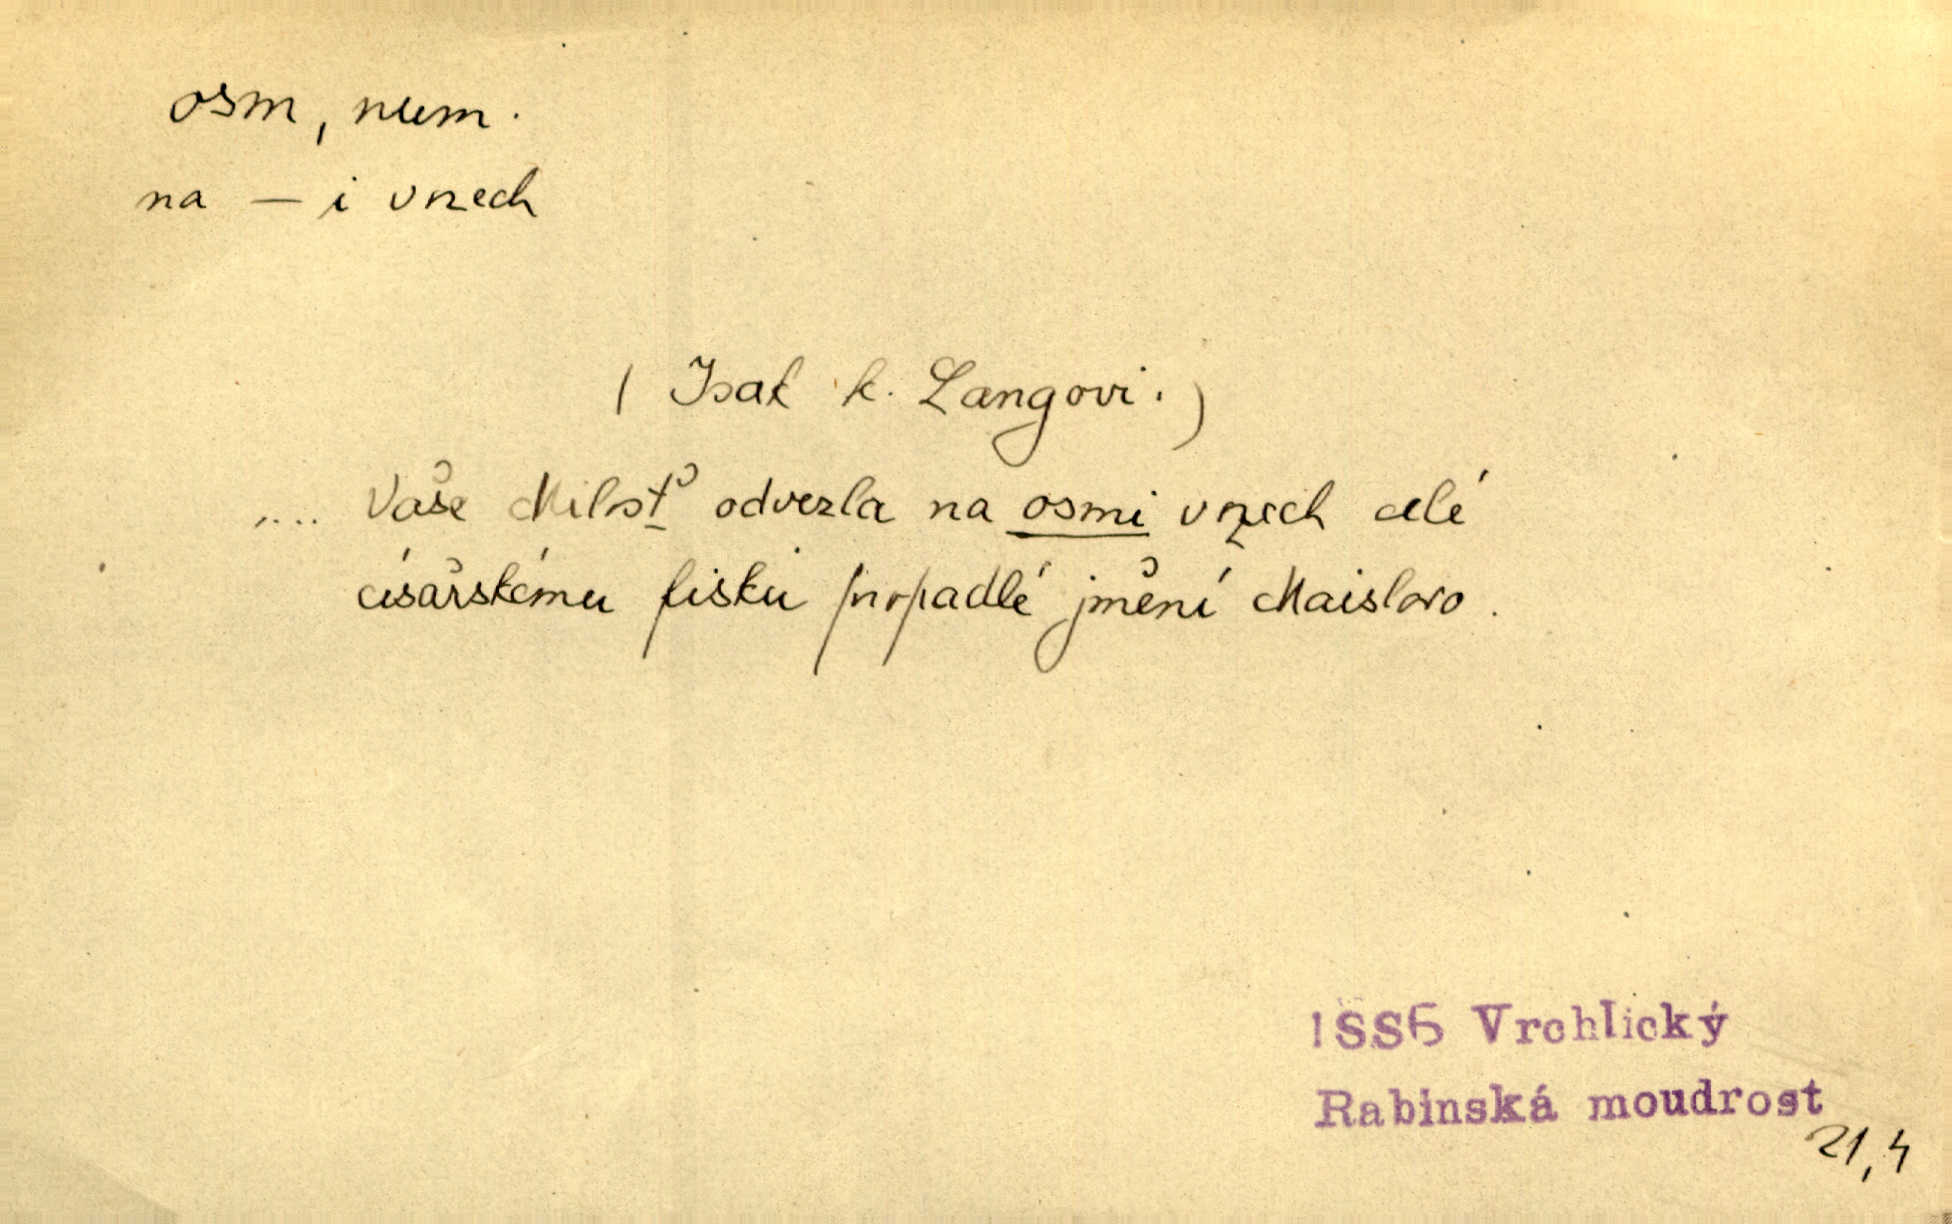 osm, num.
na — i vozech
( Isak k. Langovi. )
.... Vaše Milosť odvezla na osmi vozech celé
císařskému fisku propadlé jmění Maislovo.
1886 Vrchlický
Rabínská moudrost
21,4